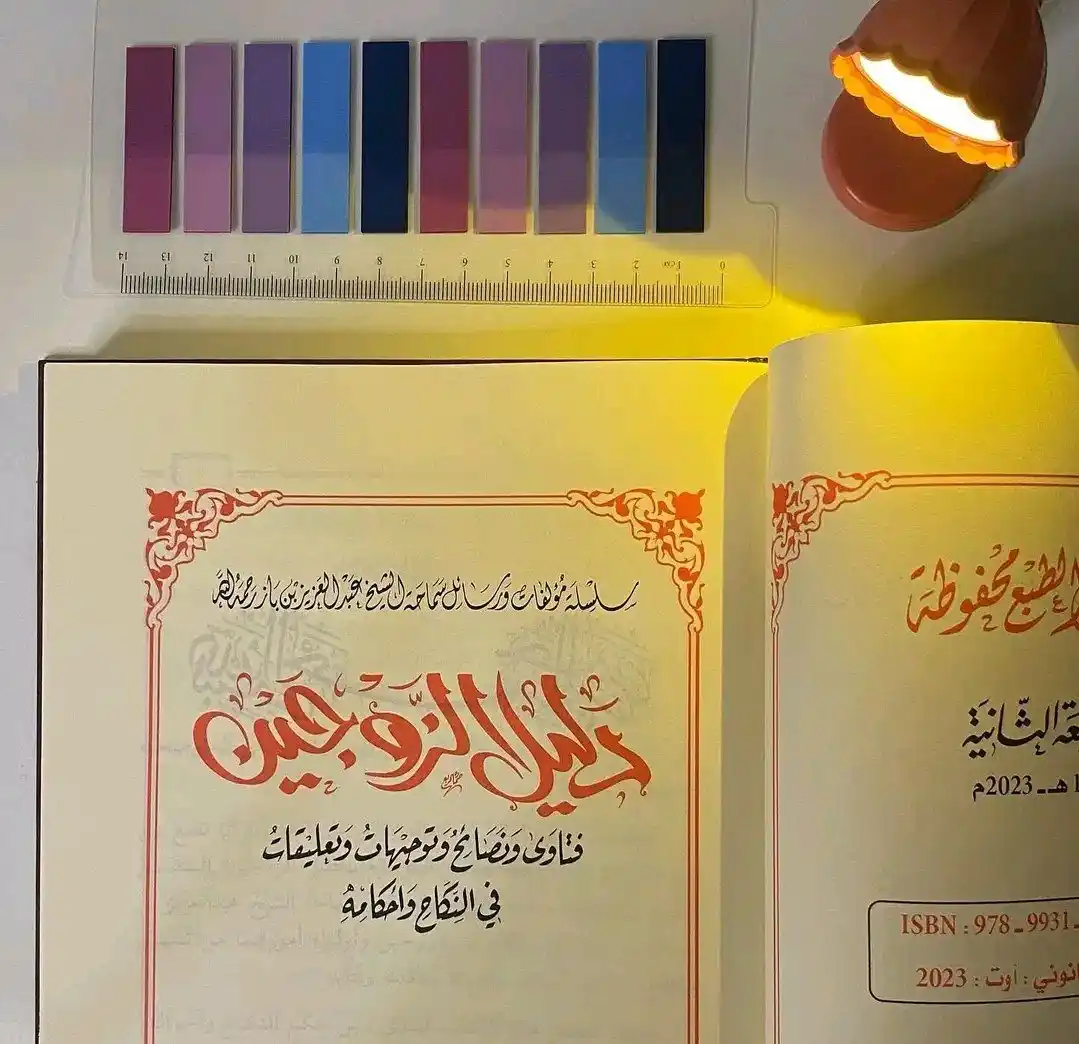 14 13 12 11 10 9 8 7 6 5 4 3 2 1cm 0
سلسلة مؤلفات ورسائل سماحة الشيخ عبد العزيز بن باز رحمه الله
دَليل الزَّوجَين
فتاوى ونصائح وتوجيهات وتعليقات
في النكاح وأحكامه
الطبع محفوظة
الثّانية
هـ ـ 2023م
ISBN : 978 ـ 9931 ـ
أوت : 2023